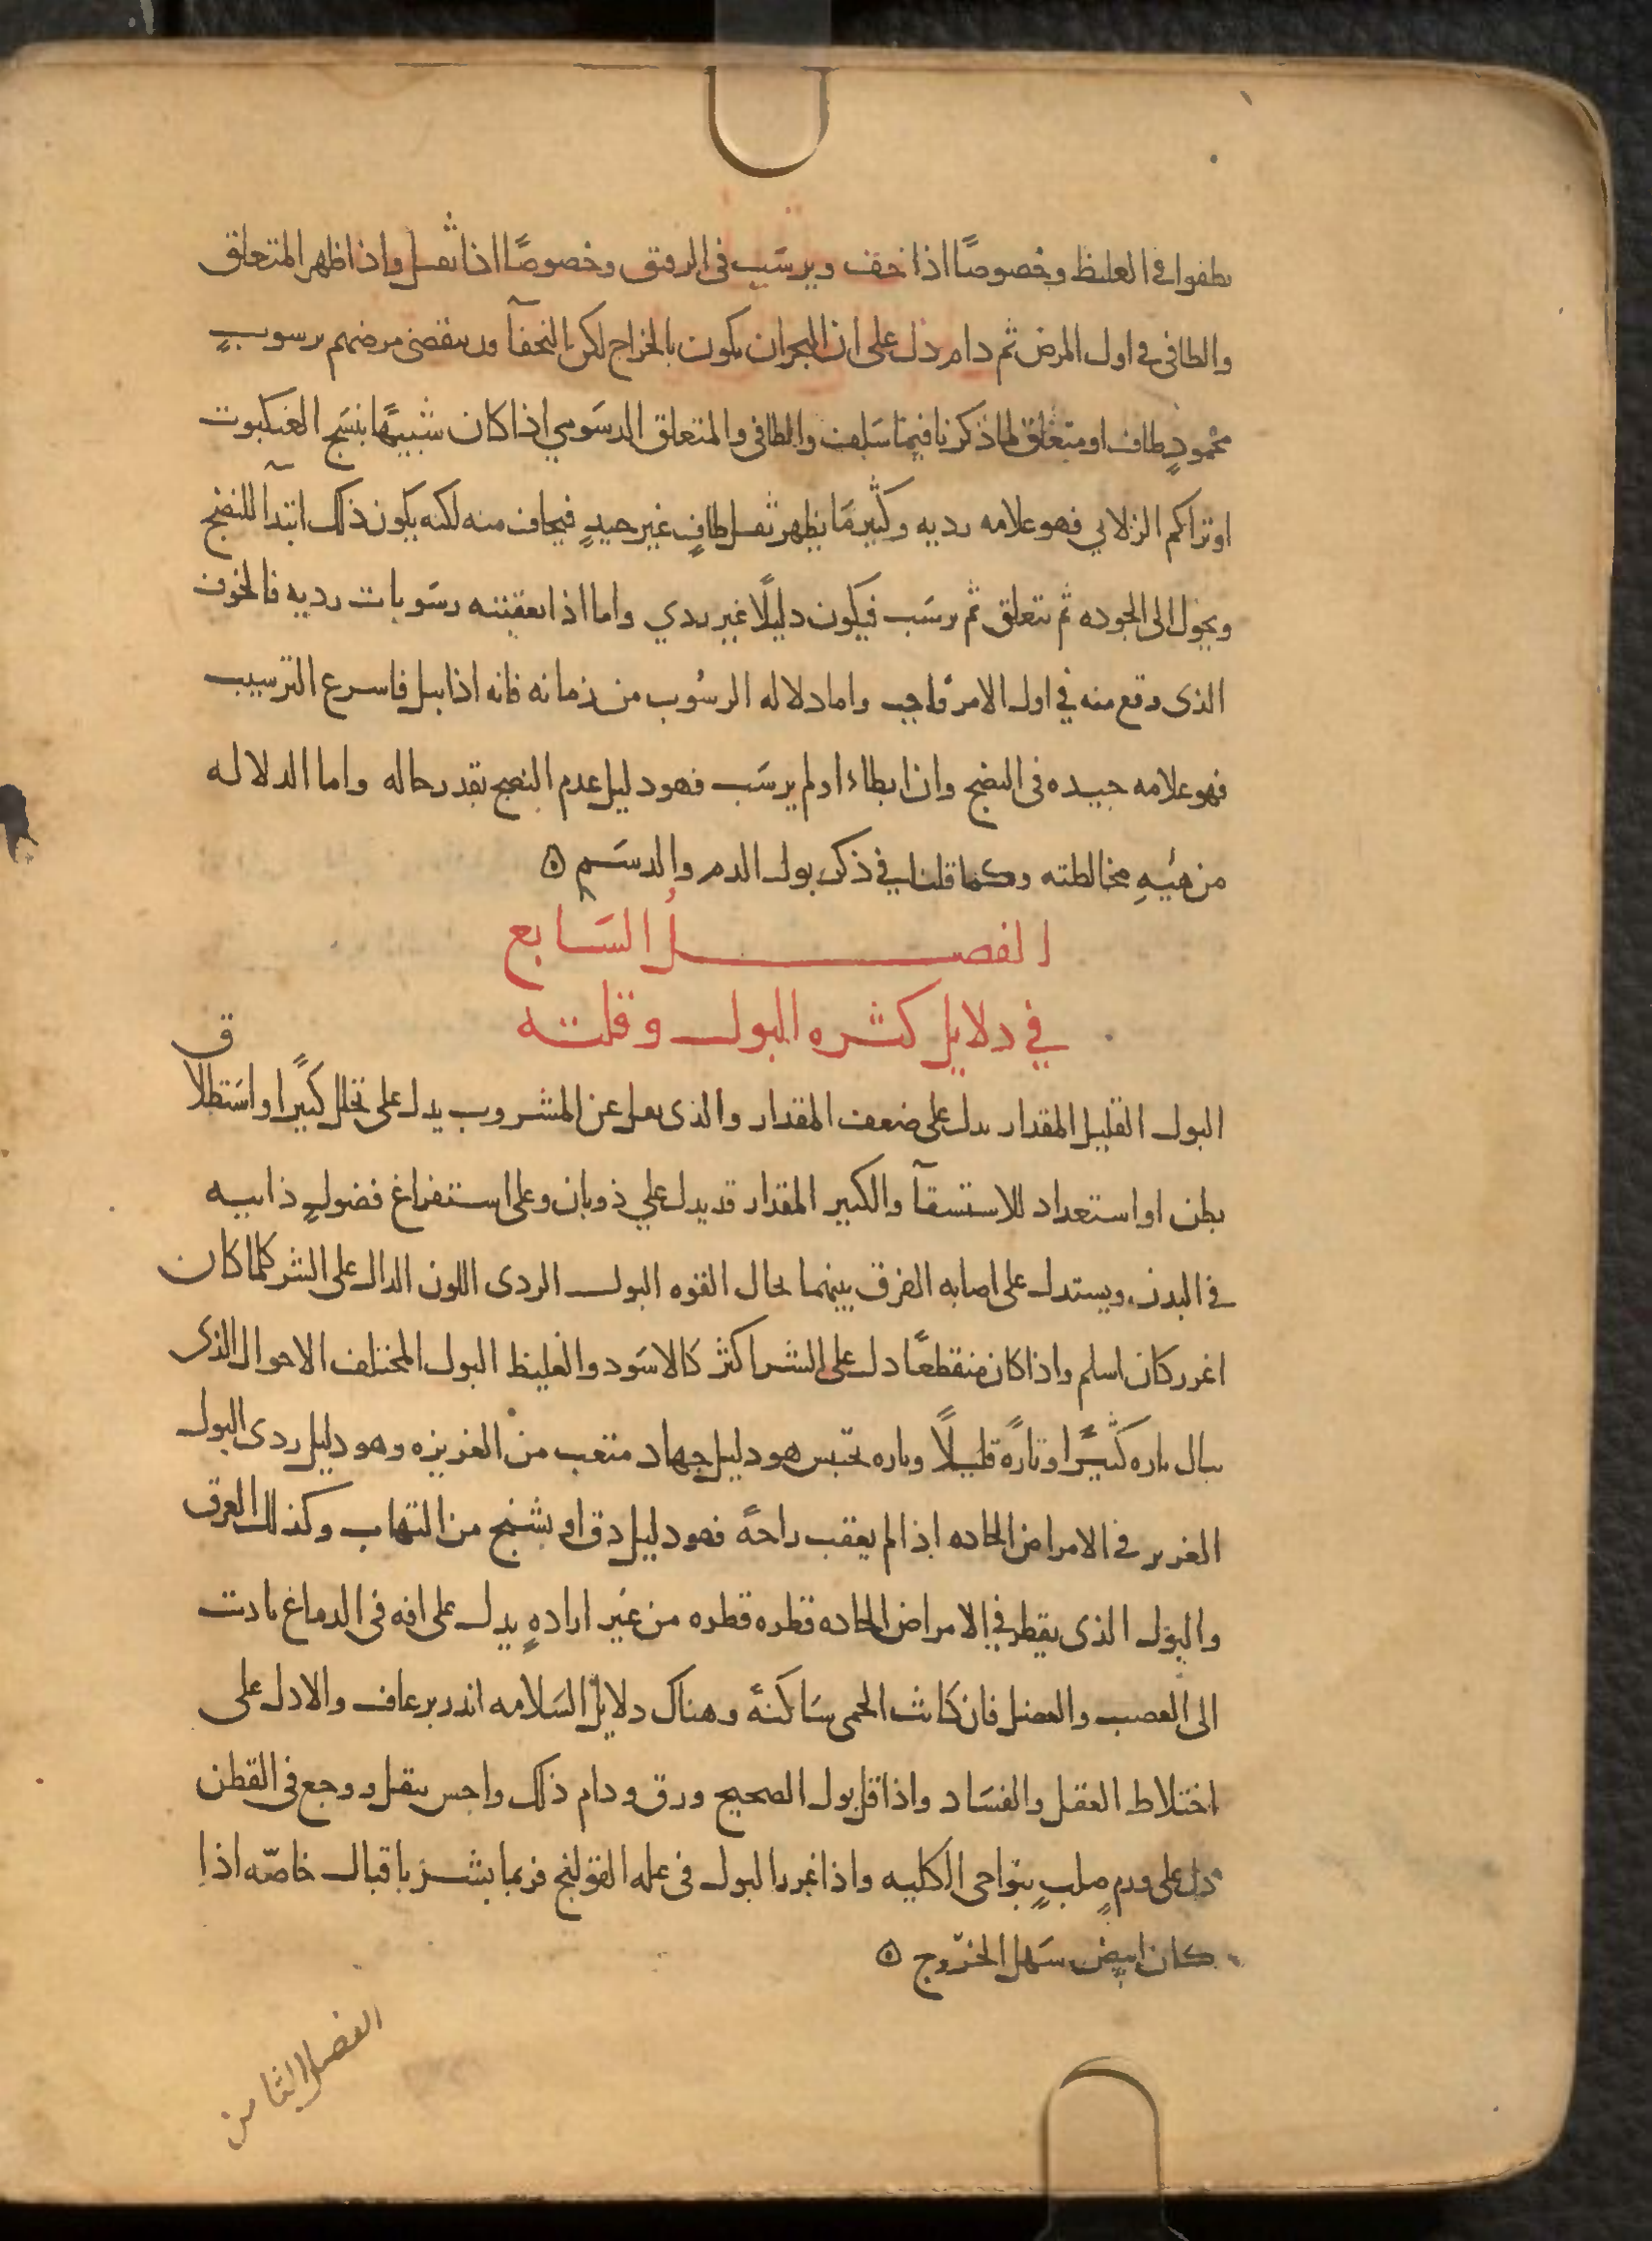 يطفوا في الغليظ وخصوصًا اذا خف ويرسَب في الرقيق وخصوصًا اذا ثقل واذا ظهر المتعلق
والطافي في اول المرض ثم دام دل على ان البحران يكون بالخراج لكن النحفآ قد ينقضي مرضهم برسوبٍ
محمودٍ طاف او متعلق لما ذكرنا فيما سَلف والطافي والمتعلق الدسَومي اذا كان شبيهًا بنسَج العنكبوت
او تراكم الزلابي فهو علامه رديه وكثير مَا يظهر ثفل طافٍ غير جيدٍ فيخاف منه لكنه يكون ذلك ابتدآ للنضج
ويحول الى الجوده ثم يتعلق ثم يرسَب فيكون دليلًا غير ردي واما اذا تعقبته رسَوبات رديه فالخوف
الذى وقع منه في اول الامر واجب واما دلاله الرسُوب من زمانه فانه اذا بيل فاسرع الترسيب
فهو علامه جيده في النضج وان ابطاء او لم يرسَب فهو دليل عدم النضج بقدر حاله واما الدلاله
من هيئهِ مخالطته وكما قلنا في ذكر بول الدم والدسَم ۞
الفصل السَابع
في دلايل كثره البول وقلته
البول القليل المقدار يدل على ضعف المقدار والذى يقل عن المشروب يدل على تحلل كثيرًا واسَتطلاق
بطن او استعداد للاستسقآ والكثير المقدار قد يدل علي ذوبان وعلى استفراغ فضولٍ ذايبه
في البدن ويستدل على اصابه الفرق بينهما بحال القوه البول الردى اللون الدال على الشر كلما كان
اغرر كان اسلم واذا كان منقطعًا دل على الشر اكثر كالاسَود والغليظ البول المختلف الاحوال الذى
يبال تاره كثيرًا وتارًه قليلًا وتاره تحتبس هو دليل جهاد متعب من الغريزه وهو دليل ردى البول
الغزير في الامراض الحاده اذا لم يعقب راحهً فهو دليل دق او بشنج من التهاب وكذلك العرق
والبول الذى يقطر في الامراض الحاده قطره قطره من غير ارادهٍ يدل على افه في الدماغ تادت
الى العصب والعضل فان كانت الحمى سَاكنهً وهناك دلايل السَلامه انذر برعاف والا دل على
اختلاط العقل والفسَاد واذا قل بول الصحيح ورق ودام ذلك واحس بثقل ووجع في القطن
دل على ورمٍ صلبٍ بنواحى الكليه واذا غزر البول في عله القولنج فربما يبشر باقبال خاصّه اذا
كان ابيض سَهل الخرُوج ۞
الفصل الثامن